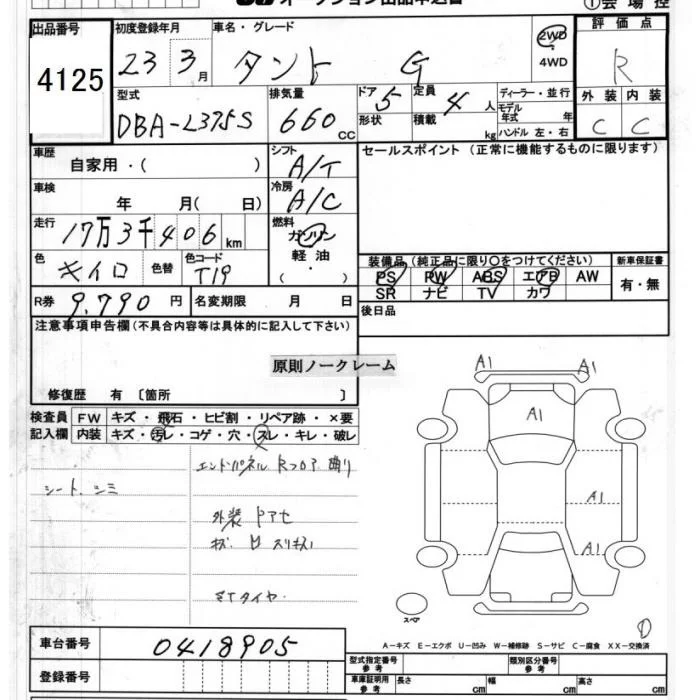 オークション出品申込書
①会場控
出品番号 4125
初度登録年月 23 3月
車名・グレード タント G
2WD
4WD
評価点 R
外装 内装
C C
型式 DBA-L375S
排気量 660 CC
ドア 5
形状
定員 4 人
積載 kg
ディーラー・並行
モデル年式 年
ハンドル 左・右
車歴 自家用・( )
シフト A/T
セールスポイント (正常に機能するものに限ります)
車検 年 月( 日)
冷房 A/C
走行 17万3千406 km
燃料 ガソリン
軽油
( ・ )
色 キイロ
色替
色コード T19
装備品(純正品に限り〇をつけてください)
新車保証書
PS PW ABS エアB AW
有・無
SR ナビ TV カワ
R券 9,790 円
名変期限 月 日
後日品
注意事項申告欄(不具合内容等は具体的に記入して下さい)
原則ノークレーム
修復歴 有 〔箇所 〕
検査員記入欄
FW キズ・飛石・ヒビ割・リペア跡・×要
内装 キズ・汚レ・コゲ・穴・スレ・キレ・破レ
A1 A1
A1
エンドパネル Rフロア 曲り
シート シミ
A1
外装 ドアセ
キズ. 凹 スリキズ
A1
スペア
車台番号 0418905
A−キズ E−エクボ U−凹み W−補修跡 S−サビ C−腐食 XX−交換済
登録番号
型式指定番号 参考
類別区分番号 参考
車庫証明用 参考
長さ cm
幅 cm
高さ cm